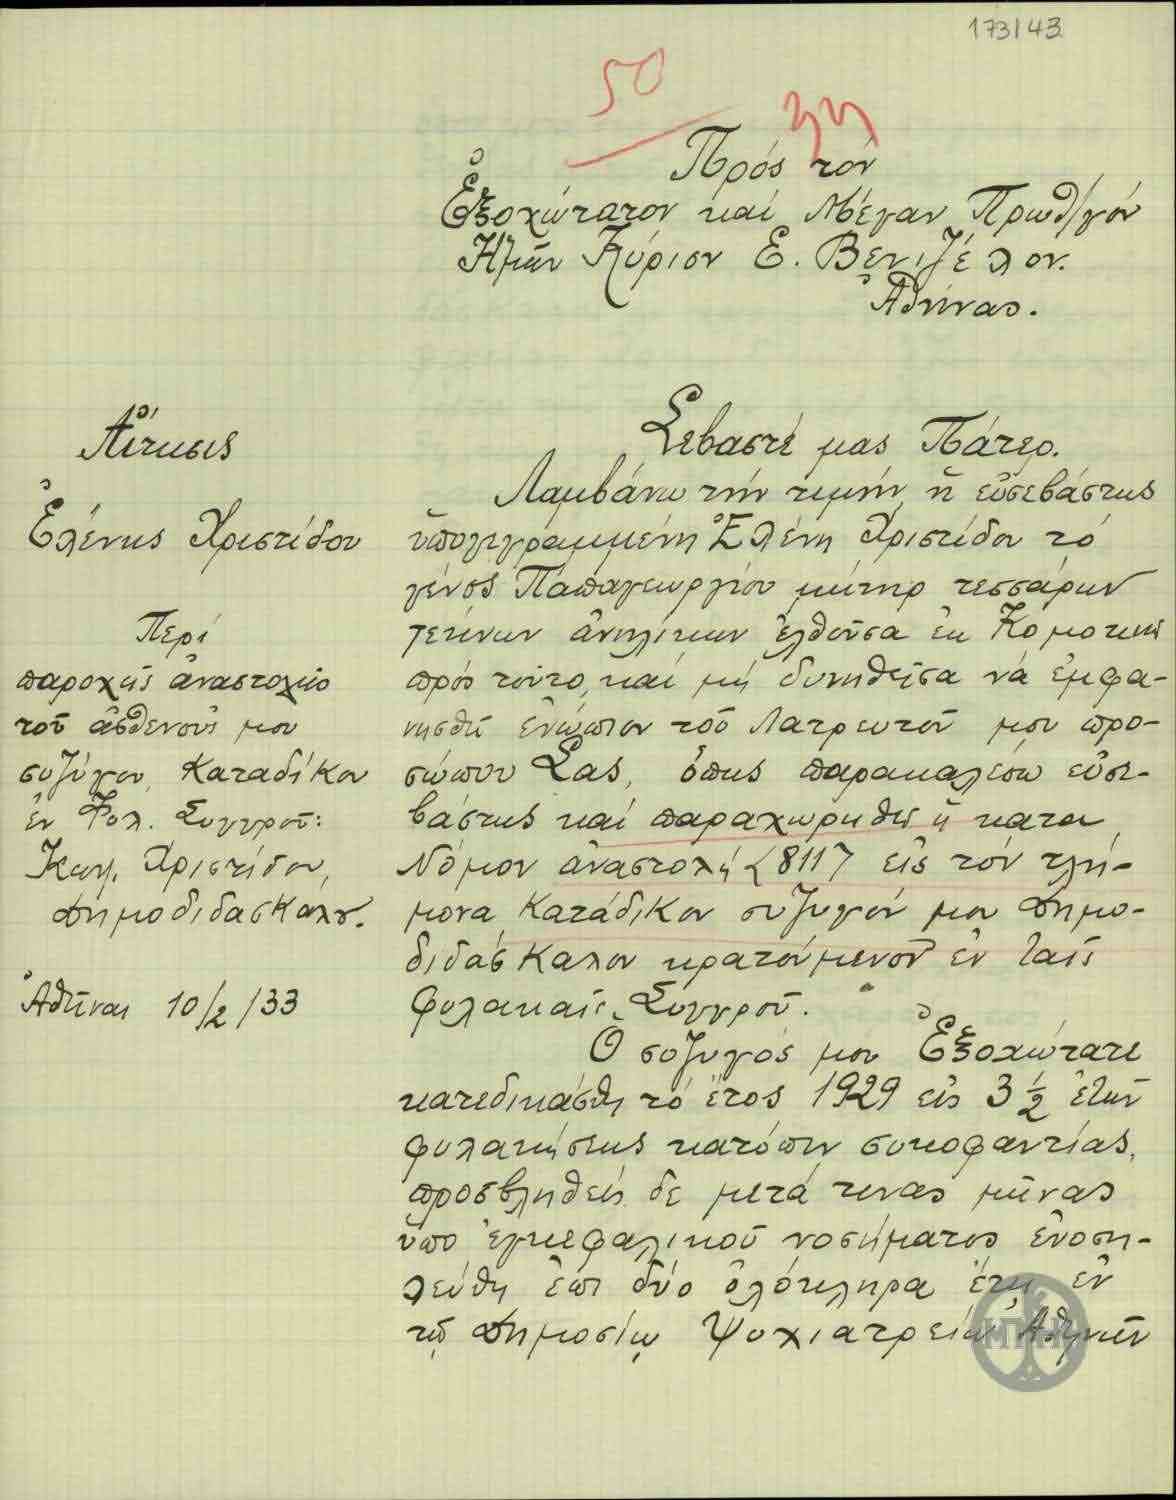 173/43
50
Πρός τόν
Ἐξοχώτατον καί Μέγαν Πρωθ/γόν
Ἡμῶν Κύριον Ε. Βενιζέλον.
Ἀθήνας.
Αἴτησις
Ἑλένης Χριστίδου
Περί
παροχῆς ἀναστολῆς
τοῦ ἀσθενοῦς μου
συζύγου, Καταδίκου
ἐν Φυλ. Συγγροῦ:
Κων. Χριστίδου,
Δημοδιδασκάλου.
Ἀθῆναι 10/2/33
Σεβαστέ μας Πάτερ.
Λαμβάνω τήν τιμήν ἡ εὐσεβάστως
ὑπογιγραμμένη Ἑλένη Χριστίδου τό
γένος Παπαγεωργίου μήτηρ τεσσάρων
τέκνων ἀνηλίκων ἐλθοῦσα ἐκ Κομοτινῆς
πρός τοῦτο, καί μή δυνηθεῖσα νά ἐμφα-
νησθῶ ἐνώπιον τοῦ Λατρευτοῦ μου προ-
σώπου Σας, ὅπως παρακαλέσω εὐσε-
βάστως καί παραχωρηθῇ ἡ κατα
Νόμον ἀναστολή 8117 εἰς τόν τλή-
μονα Κατάδικον συζυγόν μου Δημο-
διδάσκαλον κρατούμενον ἐν ταῖς
φυλακαῖς Συγγροῦ.
Ὁ σύζυγός μου Ἐξοχώτατε
κατεδικάσθη τό ἔτος 1929 εἰς 3 1/2 ἐτῶν
φυλακήσεως κατόπιν συκοφαντίας,
προσβληθείς δε μετά τινας μῆνας
ὑπο ἐγκεφαλικοῦ νοσήματος ἐνοση-
λεύθη ἐπι δύο ὁλόκληρα ἔτη ἐν
τῷ Δημοσίῳ Ψυχιατρείῳ Ἀθηνῶν